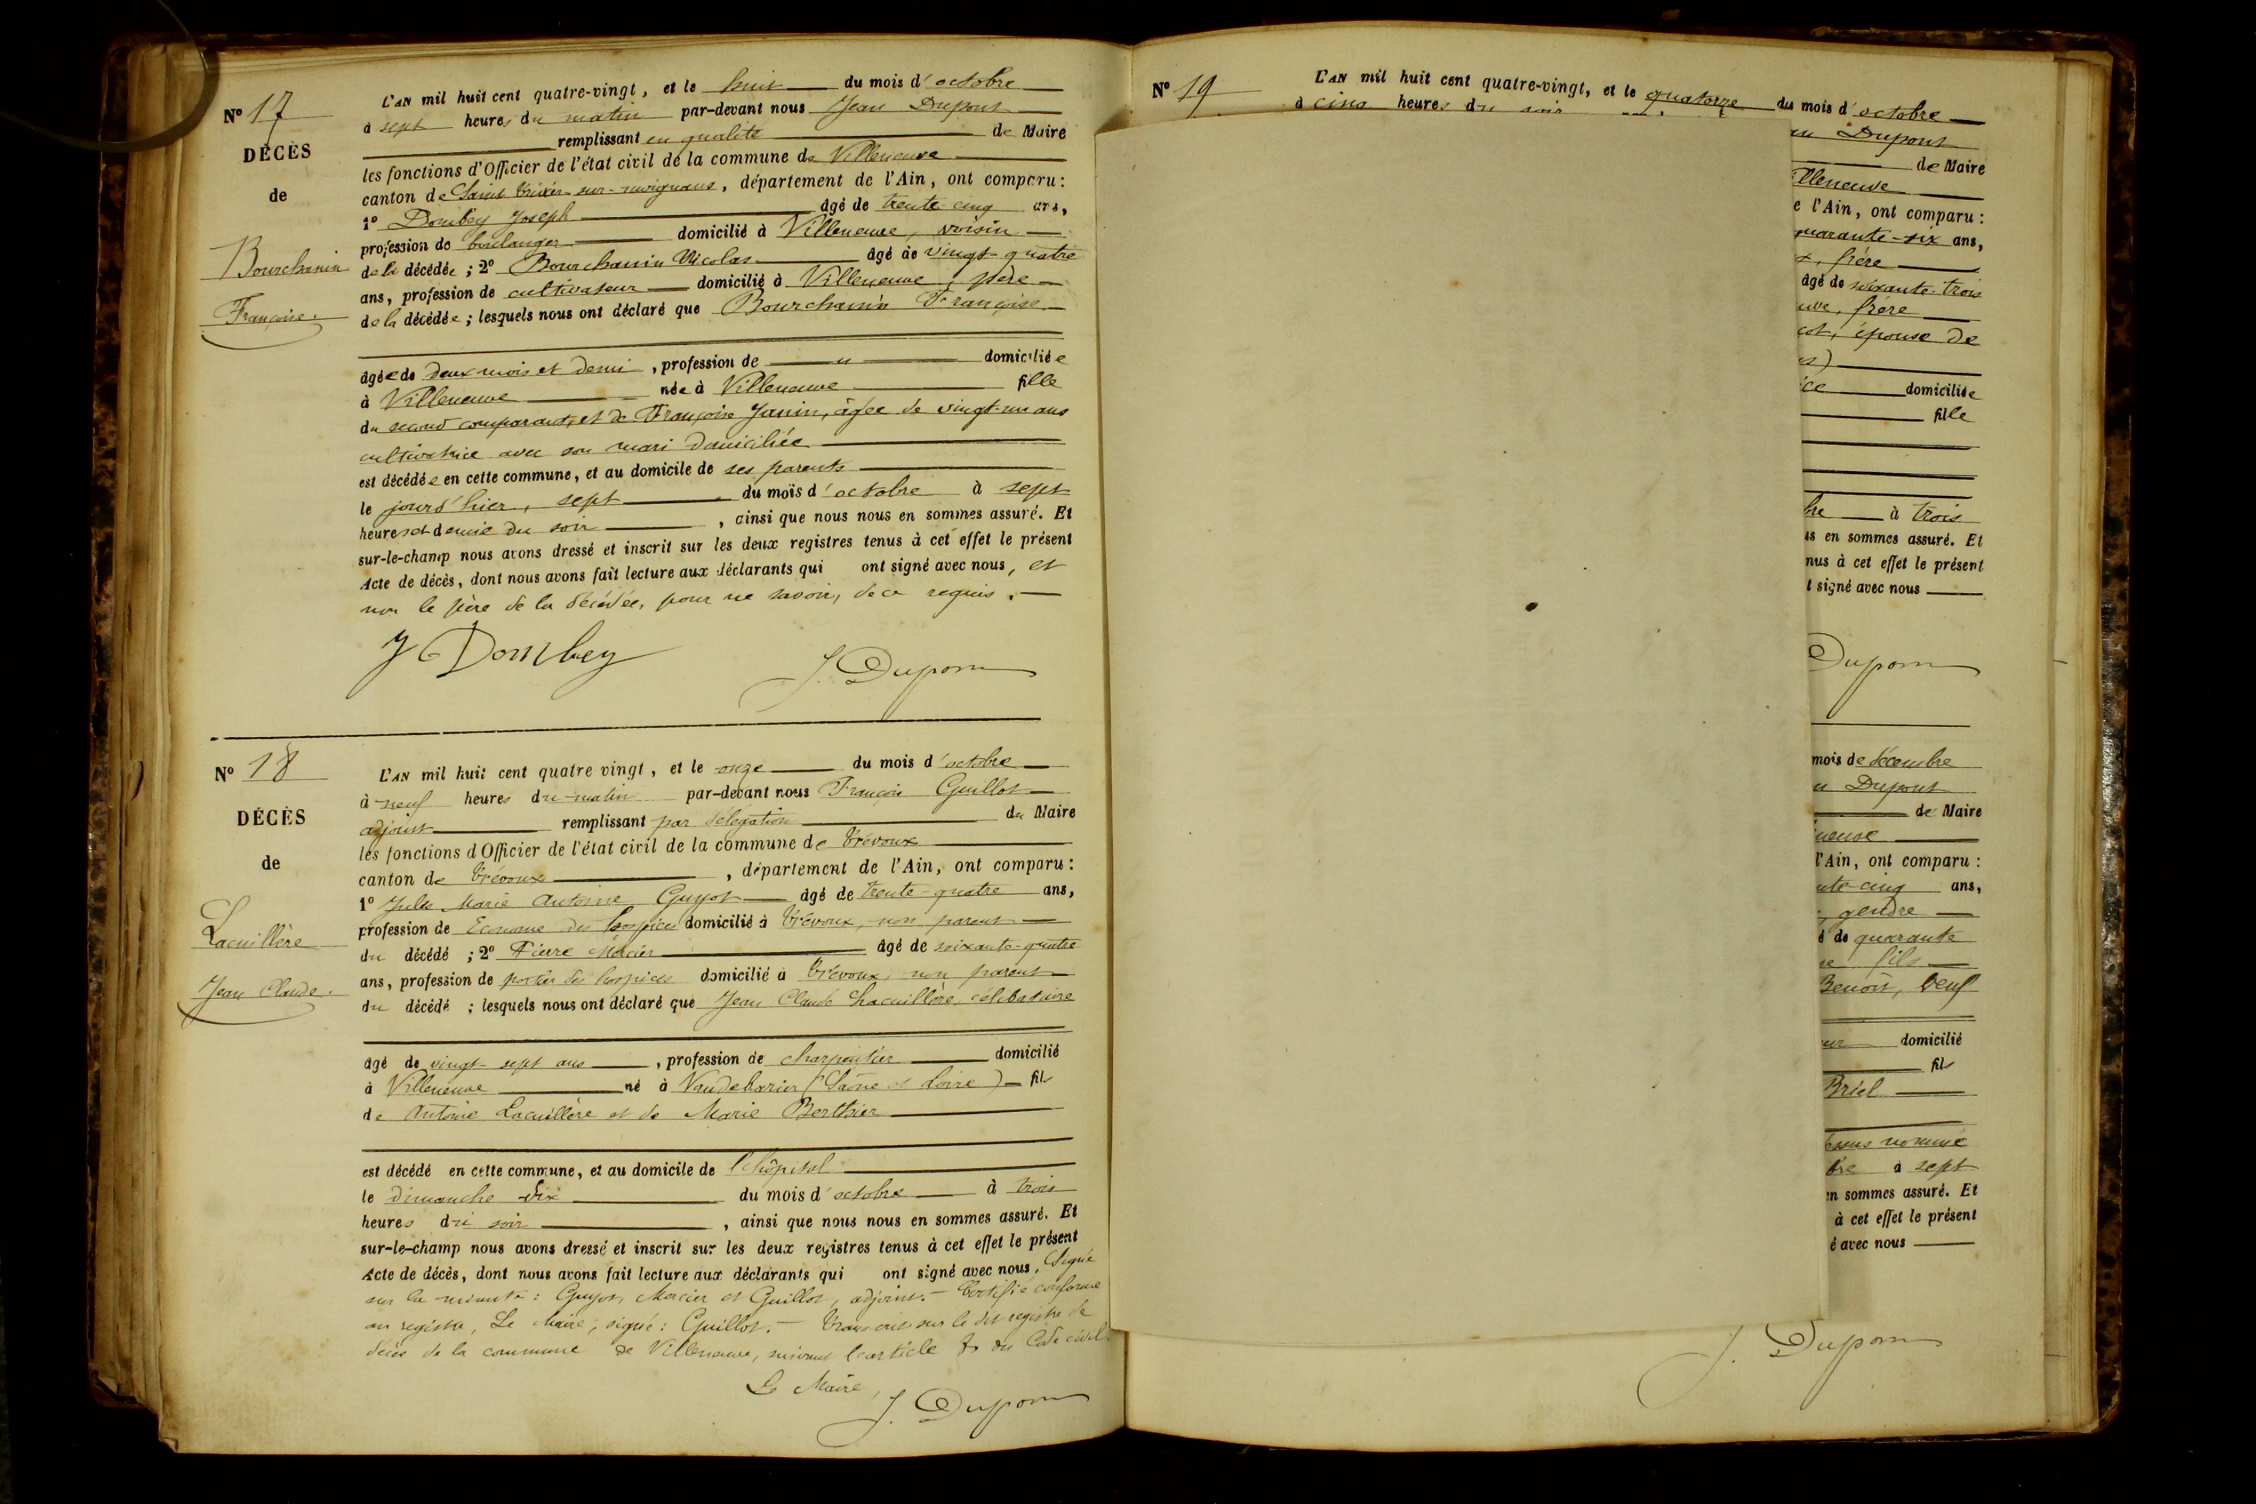 N° 17
DÉCÈS
de
Bourchanin
Françoise.
L'AN mil huit cent quatre-vingt, et le huit du mois d'octobre
à sept heures du matin par-devant nous Jean Dupont
remplissant en qualité de Maire
les fonctions d'Officier de l'état civil de la commune de Villeneuve
canton de Saint Trivier-sur-moignans, département de l'Ain, ont comparu :
1° Dombey Joseph âgé de trente-cinq ans,
profession de boulanger domicilié à Villeneuve, voisin
de la décédée ; 2° Bourchanin Nicolas âgé de vingt-quatre
ans, profession de cultivateur domicilié à Villeneuve, père
de la décédée ; lesquels nous ont déclaré que Bourchanin Françoise
âgée de deux mois et demi, profession de " domiciliée
à Villeneuve née à Villeneuve fille
du second comparant, et de Françoise Janin, âgée de vingt-un ans
cultivatrice avec son mari domiciliée
est décédée en cette commune, et au domicile de ses parents
le jourd'hier, sept du mois d'octobre à sept
heures et demie du soir, ainsi que nous nous en sommes assuré. Et
sur-le-champ nous avons dressé et inscrit sur les deux registres tenus à cet effet le présent
Acte de décès, dont nous avons fait lecture aux déclarants qui ont signé avec nous, et
non le père de la décédée, pour ne savoir, de ce requis.
J Dombey
J. Dupont
N° 18
DÉCÈS
de
Lacuillère
Jean Claude.
L'AN mil huit cent quatre vingt, et le onze du mois d'octobre
à neuf heures du matin par-devant nous François Guillot
adjoint remplissant par délégation du Maire
les fonctions d'Officier de l'état civil de la commune de Trévoux
canton de Trévoux, département de l'Ain, ont comparu :
1° Jules Marie Antoine Guyot âgé de trente-quatre ans,
profession de Econome des hospices domicilié à Trévoux, non parent
du décédé ; 2° Pierre Mercier âgé de soixante-quatre
ans, profession de portier des hospices domicilié à Trévoux, non parent
du décédé ; lesquels nous ont déclaré que Jean Claude Lacuillère, célibataire
âgé de vingt-sept ans, profession de charpentier domicilié
à Villeneuve né à Vaudebarier (Saône et Loire) fils
de Antoine Lacuillère et de Marie Berthier
est décédé en cette commune, et au domicile de l'hôpital
le dimanche dix du mois d'octobre à trois
heures du soir, ainsi que nous nous en sommes assuré. Et
sur-le-champ nous avons dressé et inscrit sur les deux registres tenus à cet effet le présent
Acte de décès, dont nous avons fait lecture aux déclarants qui ont signé avec nous. Signé
sur la minute : Guyot, Mercier et Guillot, adjoint. – Certifié conforme
au registre, Le Maire, signé : Guillot. – Transcrit sur le dit registre de
décès de la commune de Villeneuve, suivant l'article du Code civil.
Le Maire,
J. Dupont
N° 19
L'AN mil huit cent quatre-vingt, et le quatorze du mois d'octobre
à cinq heures du soir
Dupont
de Maire
lleneuve
e l'Ain, ont comparu :
quarante-six ans,
frère
âgé de soixante-trois
uve, frère
cot, épouse de
domiciliée
fille
bre à trois
us en sommes assuré. Et
nus à cet effet le présent
t signé avec nous
Dupont
mois de décembre
Dupont
de Maire
neuve
l'Ain, ont comparu :
nte-cinq ans,
gendre
é de quarante
fils
Benoît, veuf
ur domicilié
fils
Briel
essus nommé
bre à sept
en sommes assuré. Et
à cet effet le présent
é avec nous
J. Dupont